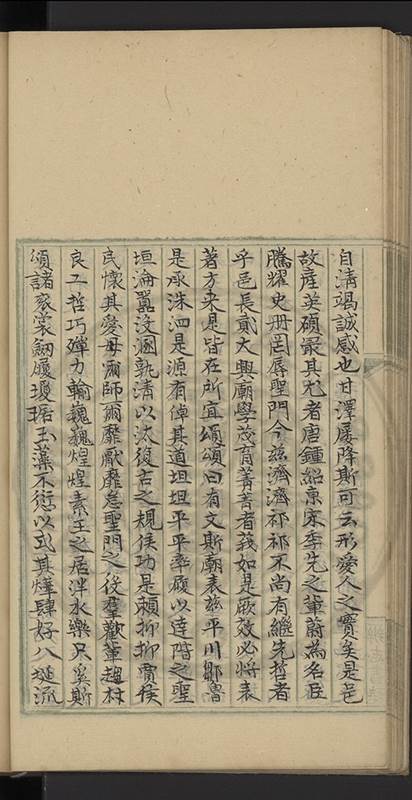 自清竭誠感也甘澤屢降斯可云形愛人之實矣是邑
故產英碩最其尤者唐鍾紹京宋李先之輩蔚為名臣
騰耀史冊罔辱聖門今玆濟濟祁祁不尚有繼先哲者
乎邑長貳大興廟學茂育菁菁者莪如是厥效必將表
著方来是皆在所宜頌頌曰有文斯廟表玆平川鄒魯
是承洙泗是源有倬其道坦坦平平率履以達階之聖
垣淪嚚沒溷孰清以汰復古之規侯功是賴抑抑賈侯
民懷其愛母爾師爾靡厭靡怠聖門之役羣歡輩趨材
良工哲巧殫力輸巍巍煌煌素王之居泮水樂只奚斯
頌諸袞裳舄履瓊琚玉藻不愆以式其燁肆好八埏流